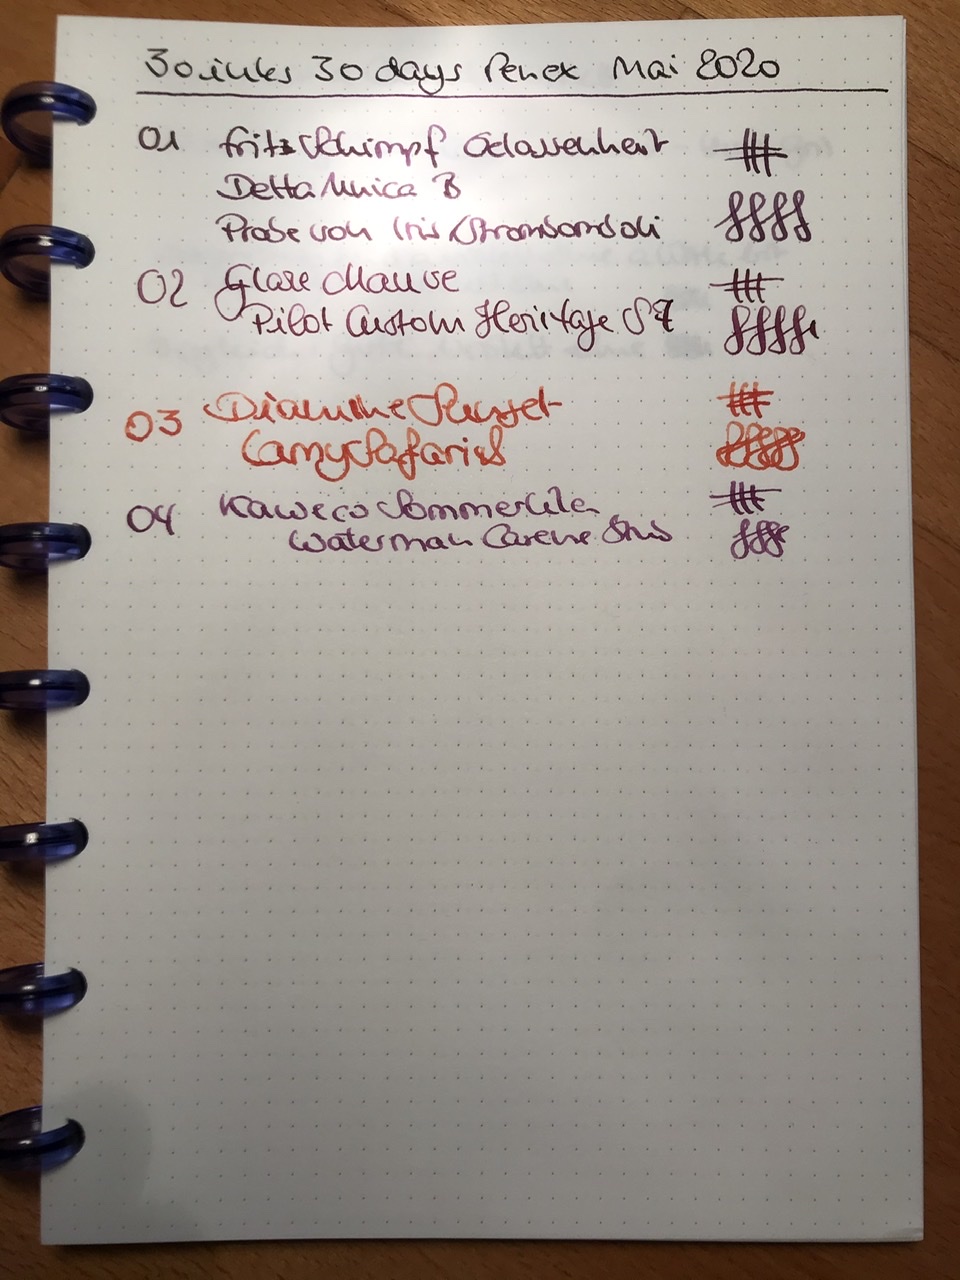 30 inks 30 days Penex Mai 2020
01 Fritz Schimpf Gelassenheit
Delta Unica B
Probe von Iris Strombomboli
02 Glase Mauve
Pilot Custom Heritage SF
03 Diamine Sunset
Lamy Safari
04 Kaweco Sommerlila
Waterman Carene